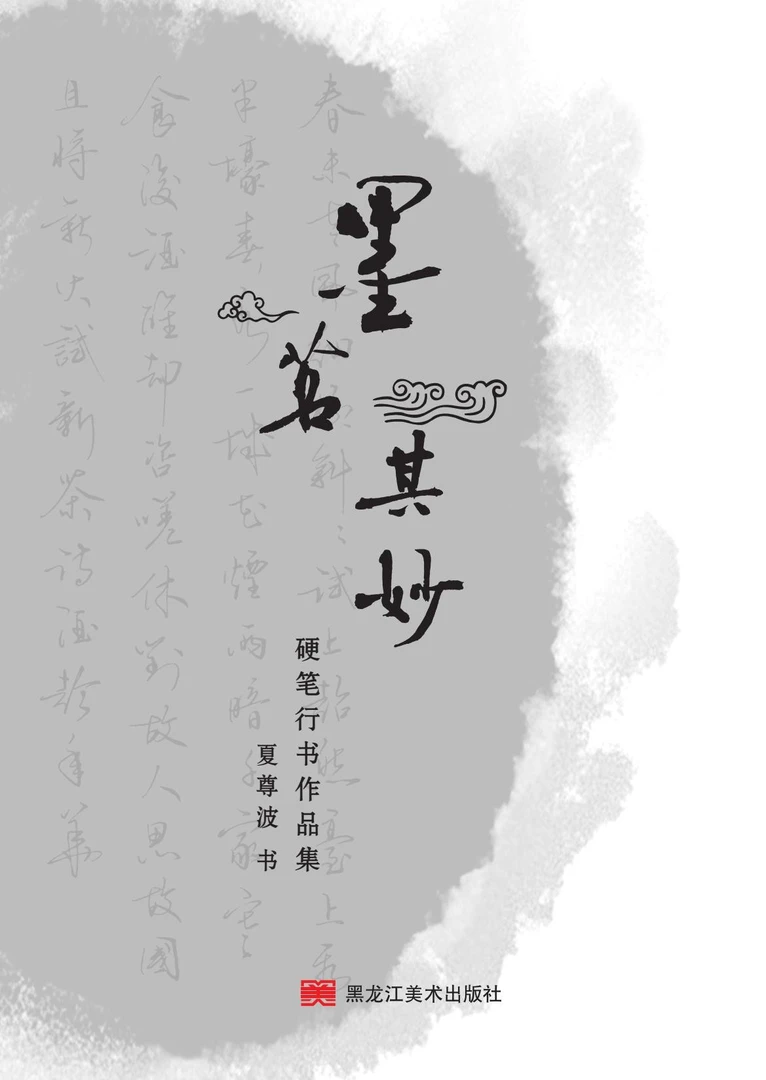 春未老風細柳斜〻试上超然臺上看
半壕春水一城花煙雨暗千家寒
食後酒醒却咨嗟休對故人思故國
且將新火試新茶诗酒趁年華
墨茗其妙
硬笔行书作品集
夏尊波 书
美 黑龙江美术出版社